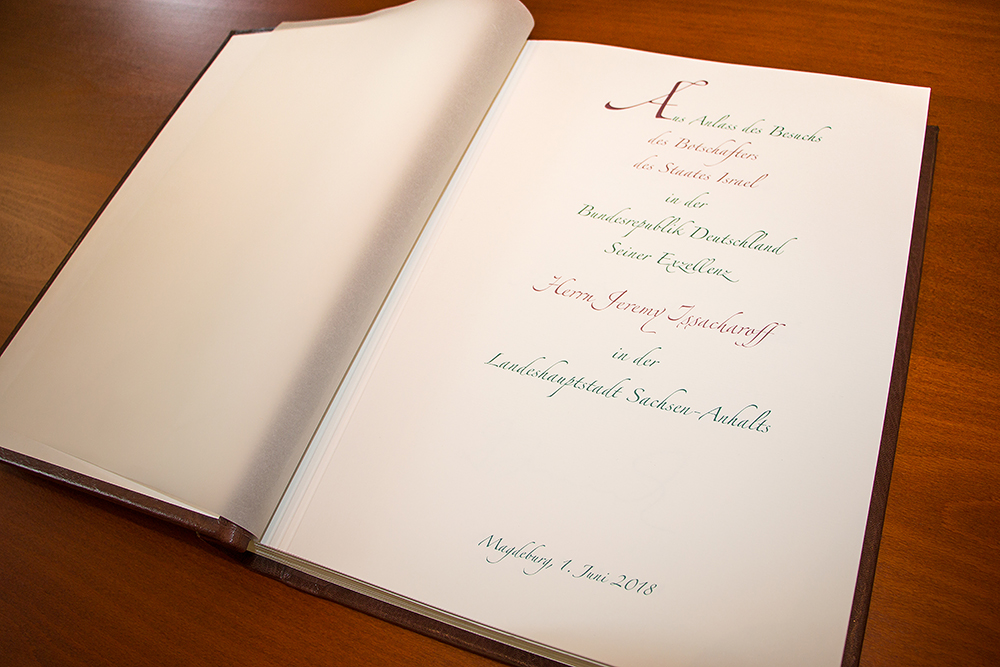 Aus Anlass des Besuchs
des Botschafters
des Staates Israel
in der
Bundesrepublik Deutschland
Seiner Exzellenz
Herrn Jeremy Issacharoff
in der
Landeshauptstadt Sachsen-Anhalts
Magdeburg, 1. Juni 2018